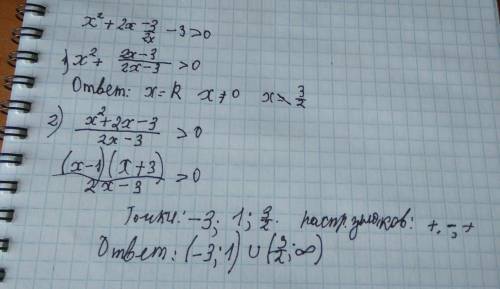 x² + 2x - 3/2x - 3 > 0
1) x² + (2x-3)/(2x-3) > 0
Ответ: x = R x ≠ 0 x > 3/2
2) (x²+2x-3)/(2x-3) > 0
((x-1)(x+3))/(2x-3) > 0
Точки: -3; 1; 3/2. распр. знаков: +, -, +
Ответ: (-3; 1) ∪ (3/2; ∞)